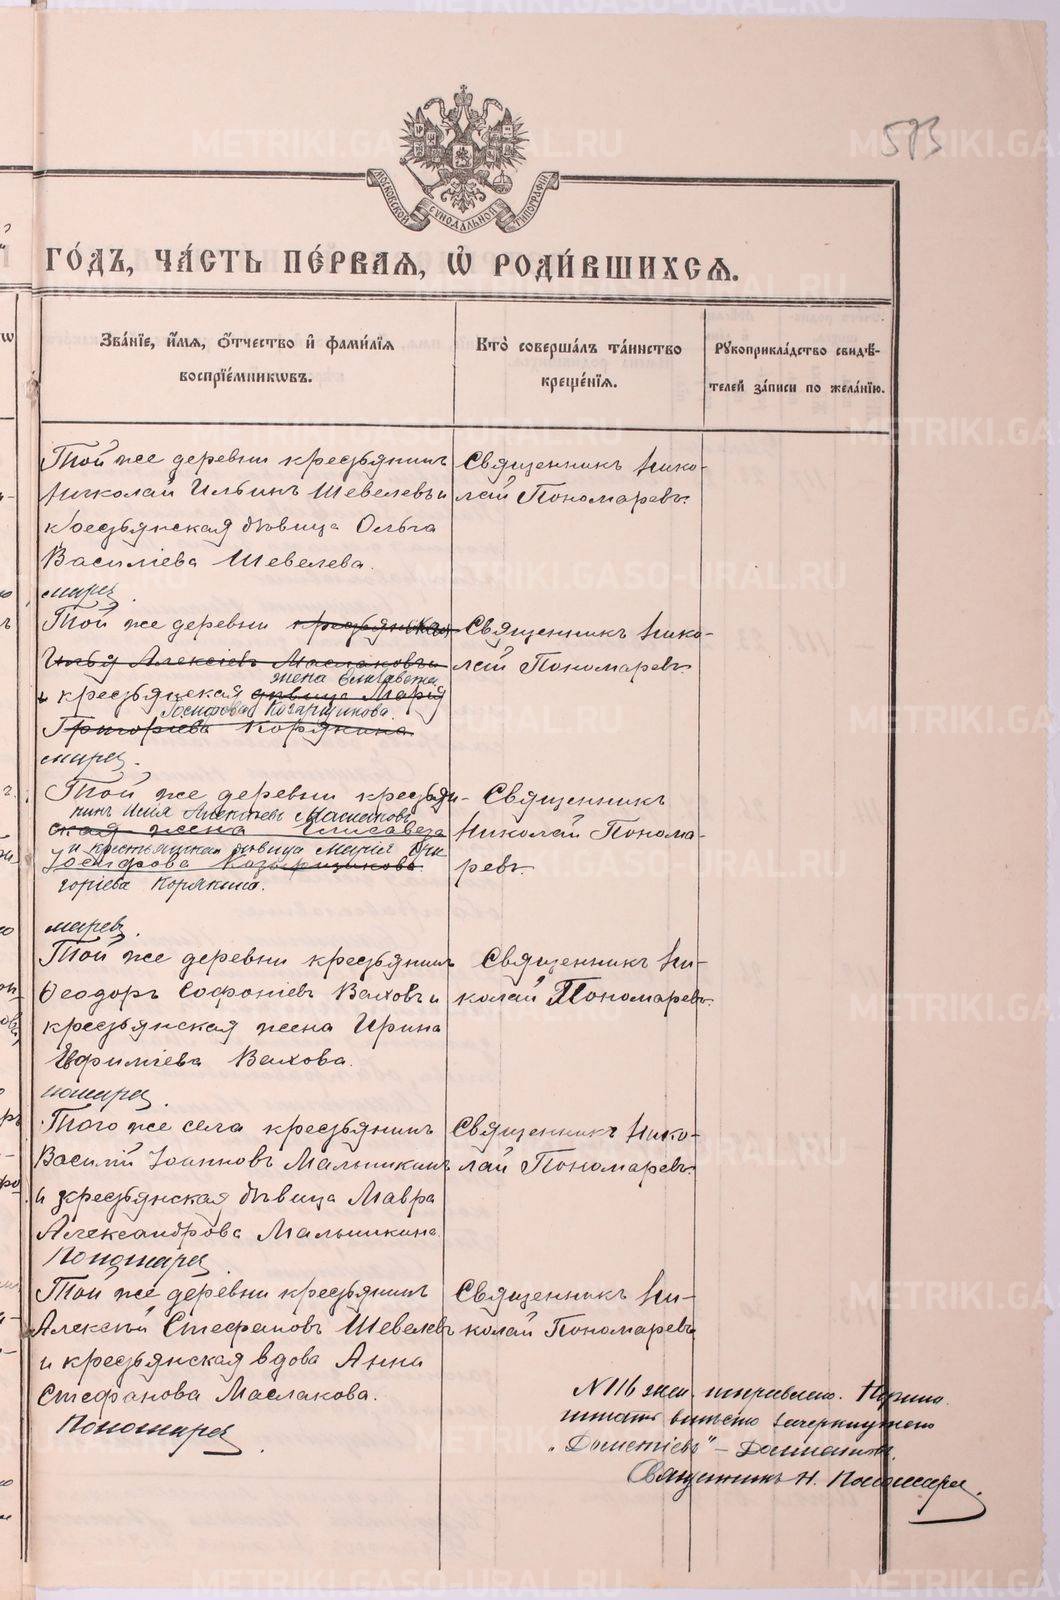 593
МОСКОВСКОЙ СѴНОДАЛЬНОЙ ТИПОГРАФІИ
ГО́ДЪ, ЧА́СТЬ ПЕ́РВАѦ, Ѡ҆ РОДИ́ВШИХСѦ.
Зва́нїе, и҆́мѧ, ѻ҆́тчество и҆ фами́лїѧ
воспрїе́мникѡвъ.
Кто̀ соверша́лъ та́инство
креще́нїѧ.
Рꙋкоприкла́дство свидѣ́-
телей за́писи по жела́нїю.
Той же деревни крестьянинъ
Николай Ильинъ Шевелевъ и
крестьянская дѣвица Ольга
Василіева Шевелева.
Священникъ Нико-
лай Пономаревъ.
Той же деревни крестьянская
Илья Алексіевъ Маслаковъ и
жена Елисавета
и крестьянская дѣвица Марія
Іосифова Козырщикова.
Григоріева Корякина
Священникъ Нико-
лай Пономаревъ.
Той же деревни крестьян-
нинъ Илія Алексіевъ Маслаковъ
ская жена Елисавета
и крестьянская дѣвица Марія Гри
Іосифова Козырщикова.
горіева Корякина.
Священникъ
Николай Понома-
ревъ.
Той же деревни крестьянинъ
Ѳеодоръ Софоніевъ Ваховъ и
крестьянская жена Ирина
Евфиміева Вахова.
Священникъ Ни-
колай Пономаревъ.
Того же села крестьянинъ
Василій Іоанновъ Малышкинъ
и крестьянская дѣвица Мавра
Александрова Малышкина
Пономарев
Священникъ Нико-
лай Пономаревъ.
Той же деревни крестьянинъ
Алексѣй Стефановъ Шевелевъ
и крестьянская вдова Анна
Стефанова Маслакова.
Пономарев
Священникъ Ни-
колай Пономаревъ
N 116 исправлено.
вмѣсто зачеркнутого
Священникъ Н. Пономарев.
METRIKI.GASO-URAL.RU